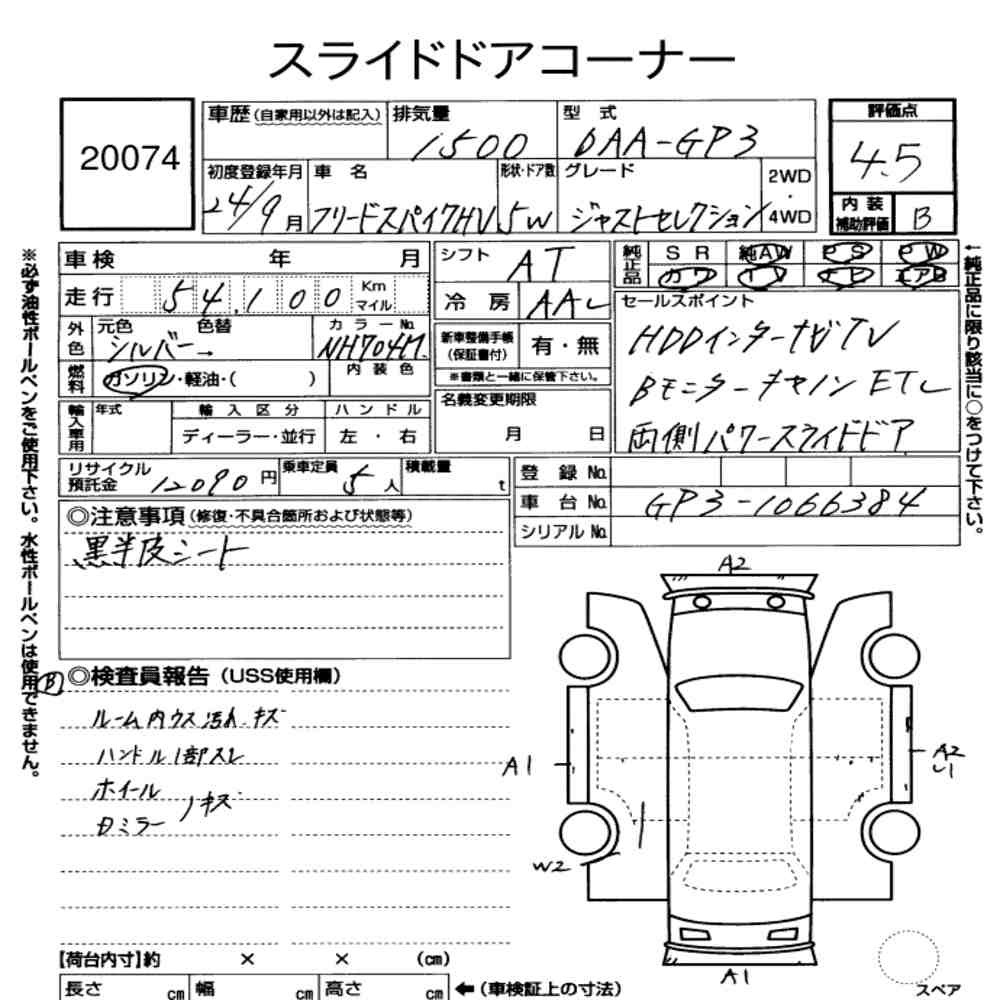 スライドドアコーナー
20074
車歴(自家用以外は記入) 排気量 1500 型 式 DAA-GP3
初度登録年月 24/9月 車 名 フリードスパイクHV 形状・ドア数 5W グレード ジャストセレクション 2WD・4WD
評価点 4.5
内装補助評価 B
※必ず油性ボールペンをご使用下さい。水性ボールペンは使用できません。
車検 年 月
走行 54,100 Km マイル
外色 元色 シルバー 色替 → カラーNo. NH704M
燃料 ガソリン・軽油・( ) 内装色
輸入車用 年式 輸入区分 ハンドル
ディーラー・並行 左・右
シフト AT
冷房 AAC
新車整備手帳(保証書付) 有・無
※書類と一緒に保管下さい。
名義変更期限
月 日
純正品 SR 純AW PS PW
カワ TV ナビ エアB
セールスポイント
HDDインターナビTV
Bモニター キャノン ETC
両側パワースライドドア
←純正品に限り該当に○をつけて下さい。
リサイクル預託金 12090円 乗車定員 5人 積載量 t
登 録 No.
車 台 No. GP3-1066384
シリアル No.
◎注意事項(修復・不具合箇所および状態等)
黒半皮シート
◎検査員報告(USS使用欄)
B
ルーム内ウス汚れ、キズ
ハンドル1部スレ
ホイール
Dミラー ノキズ
A2
A1
A2
U1
W2
A1
スペア
【荷台内寸】約 × × (cm)
長さ cm 幅 cm 高さ cm ←(車検証上の寸法)